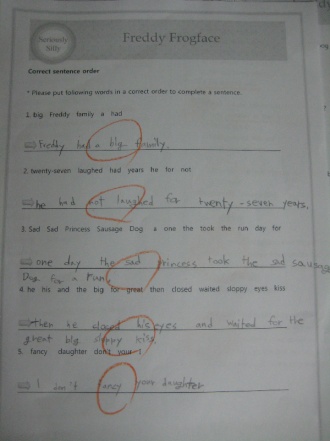 Seriously
Silly
Freddy Frogface
Correct sentence order
* Please put following words in a correct order to complete a sentence.
1. big Freddy family a had
Freddy had a big family.
2. twenty-seven laughed had years he for not
he had not laughed for twenty-seven years.
3. Sad Sad Princess Sausage Dog a one the took the run day for
one day the sad princess took the sad sausage
Dog for a run.
4. he his and the big for great then closed waited sloppy eyes kiss
then he closed his eyes and waited for the
great big sloppy kiss.
5. fancy daughter don't your I
I don't fancy your daughter